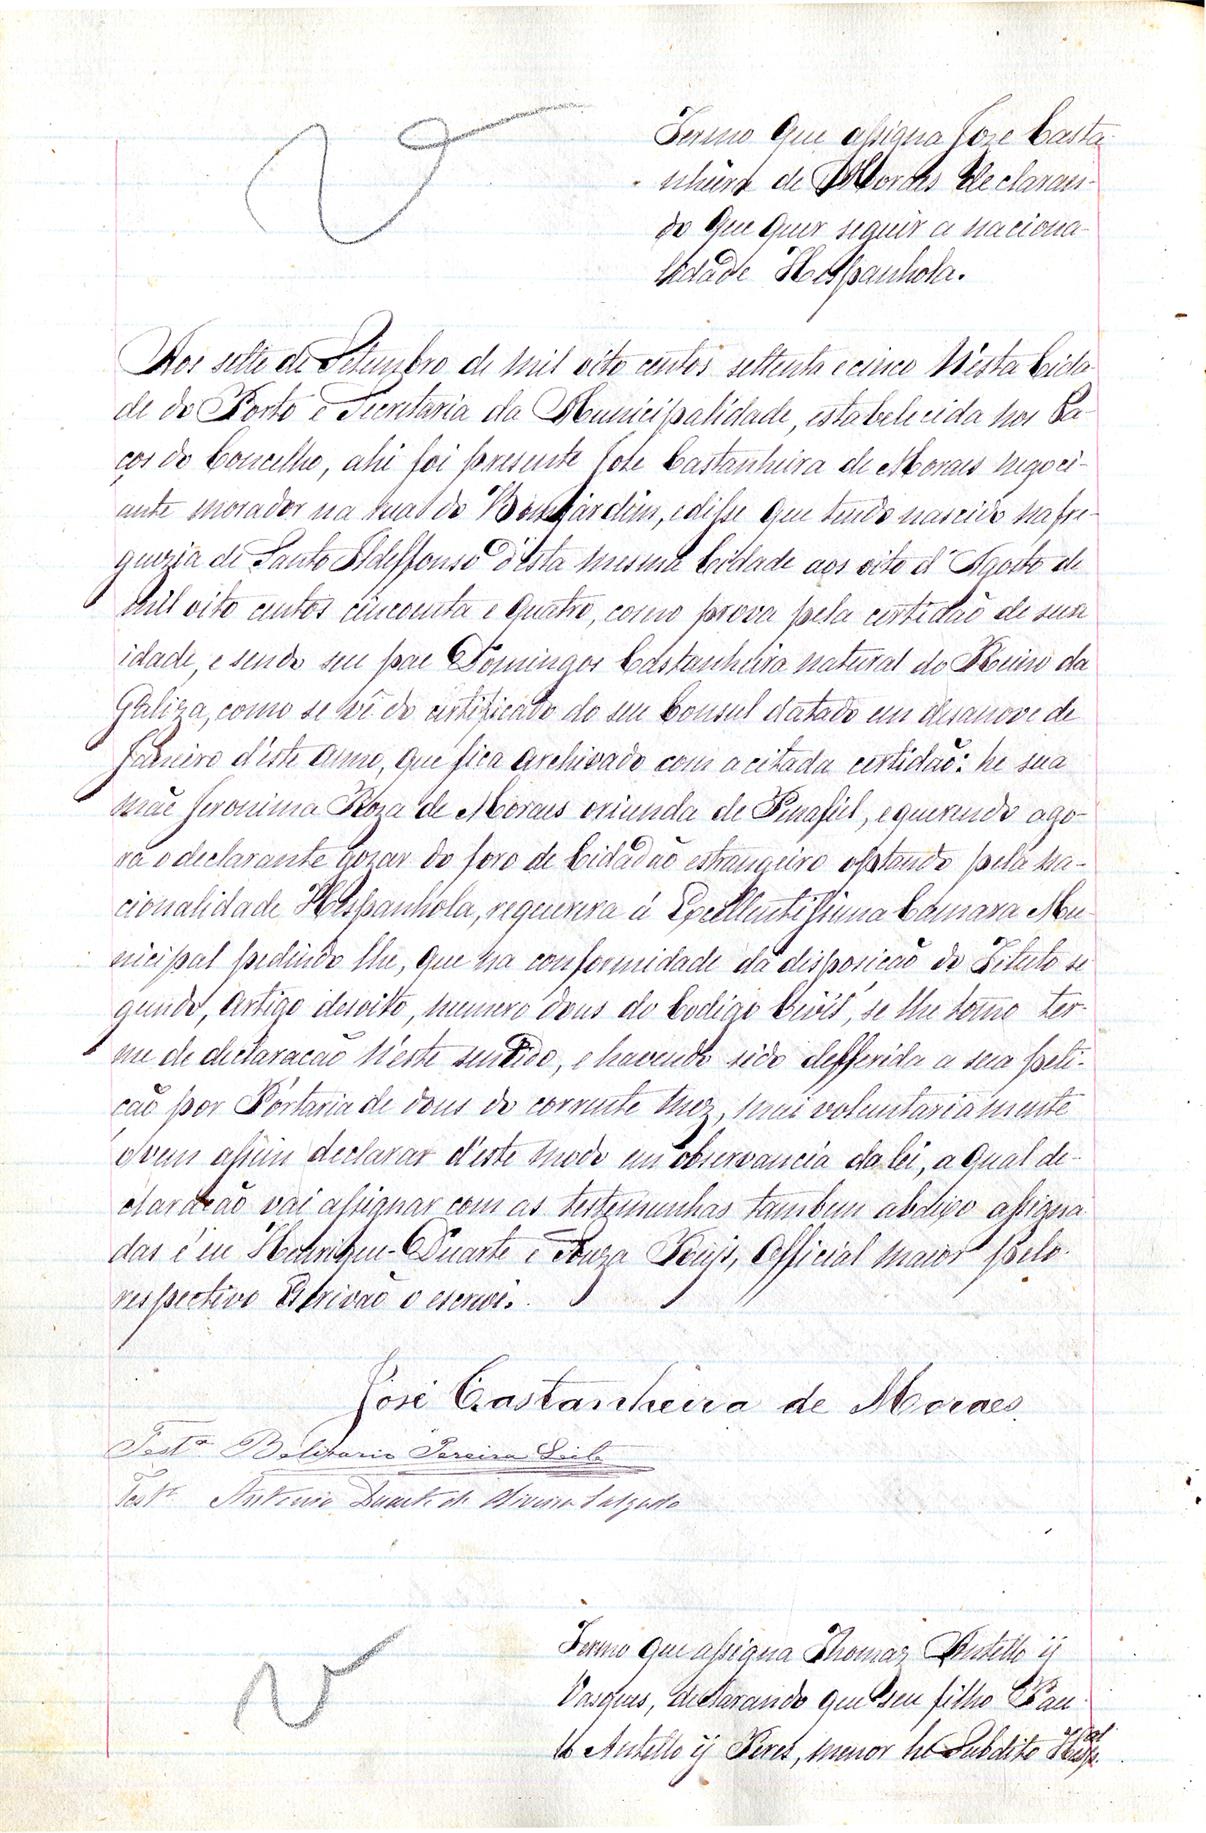 Termo que assigna Joze Casta-
nheira de Moraes declaran-
do que quer seguir a naciona-
lidade Hespanhola.
Aos sette de Setembro de mil oito centos settenta e cinco N'esta Cida-
de do Porto e Secretaria da Municipalidade, estabelecida nos Pa-
ços do Concelho, ahi foi presente José Castanheira de Moraes negoci-
ante morador na rua do Bomjardim, e disse que tendo nascido na fre-
guezia de Santo Ildeffonso d'esta mesma Cidade aos oito d'Agosto de
mil oito centos cincoenta e quatro, como prova pela certidão de sua
idade, e sendo seu pae Domingos Castanheira natural do Reino da
Galiza, como se vê do certificado do seu Consul datado em desanove de
Janeiro d'este anno, que fica archivado com a citada certidão: he sua
mãe Jeronima Roza de Moraes oriunda de Penafiel, e querendo ago-
ra o declarante gozar do foro de Cidadão estrangeiro optando pela na-
cionalidade Hespanhola, requerera á Excellentissima Camara Mu-
nicipal pedindo lhe, que na conformidade da disposicão do Titulo se
gundo, artigo desoito, numero dous do Codigo Civil, se lhe tome ter-
mo de declaracão n'este sentido, e havendo sido defferida a sua peti-
cão por Portaria de dous do corrente mez, mui voluntariamente
o vem assim declarar d'este modo em observancia da lei, a qual de-
claracão vai assignar com as testemunhas tambem abaixo assigna
das e eu Henrique Duarte e Souza Reis, Official maior pelo
respectivo Escrivão o escrevi.
José Castanheira de Moraes
Testa. Belizario Pereira Leite
Testa. Antonio Duarte de Oliveira Salgado
Termo que assigna Thomaz Antello ÿ
Vasques, declarando que seu filho Pau-
lo Antello ÿ Peres, menor he Subdito Hespal.